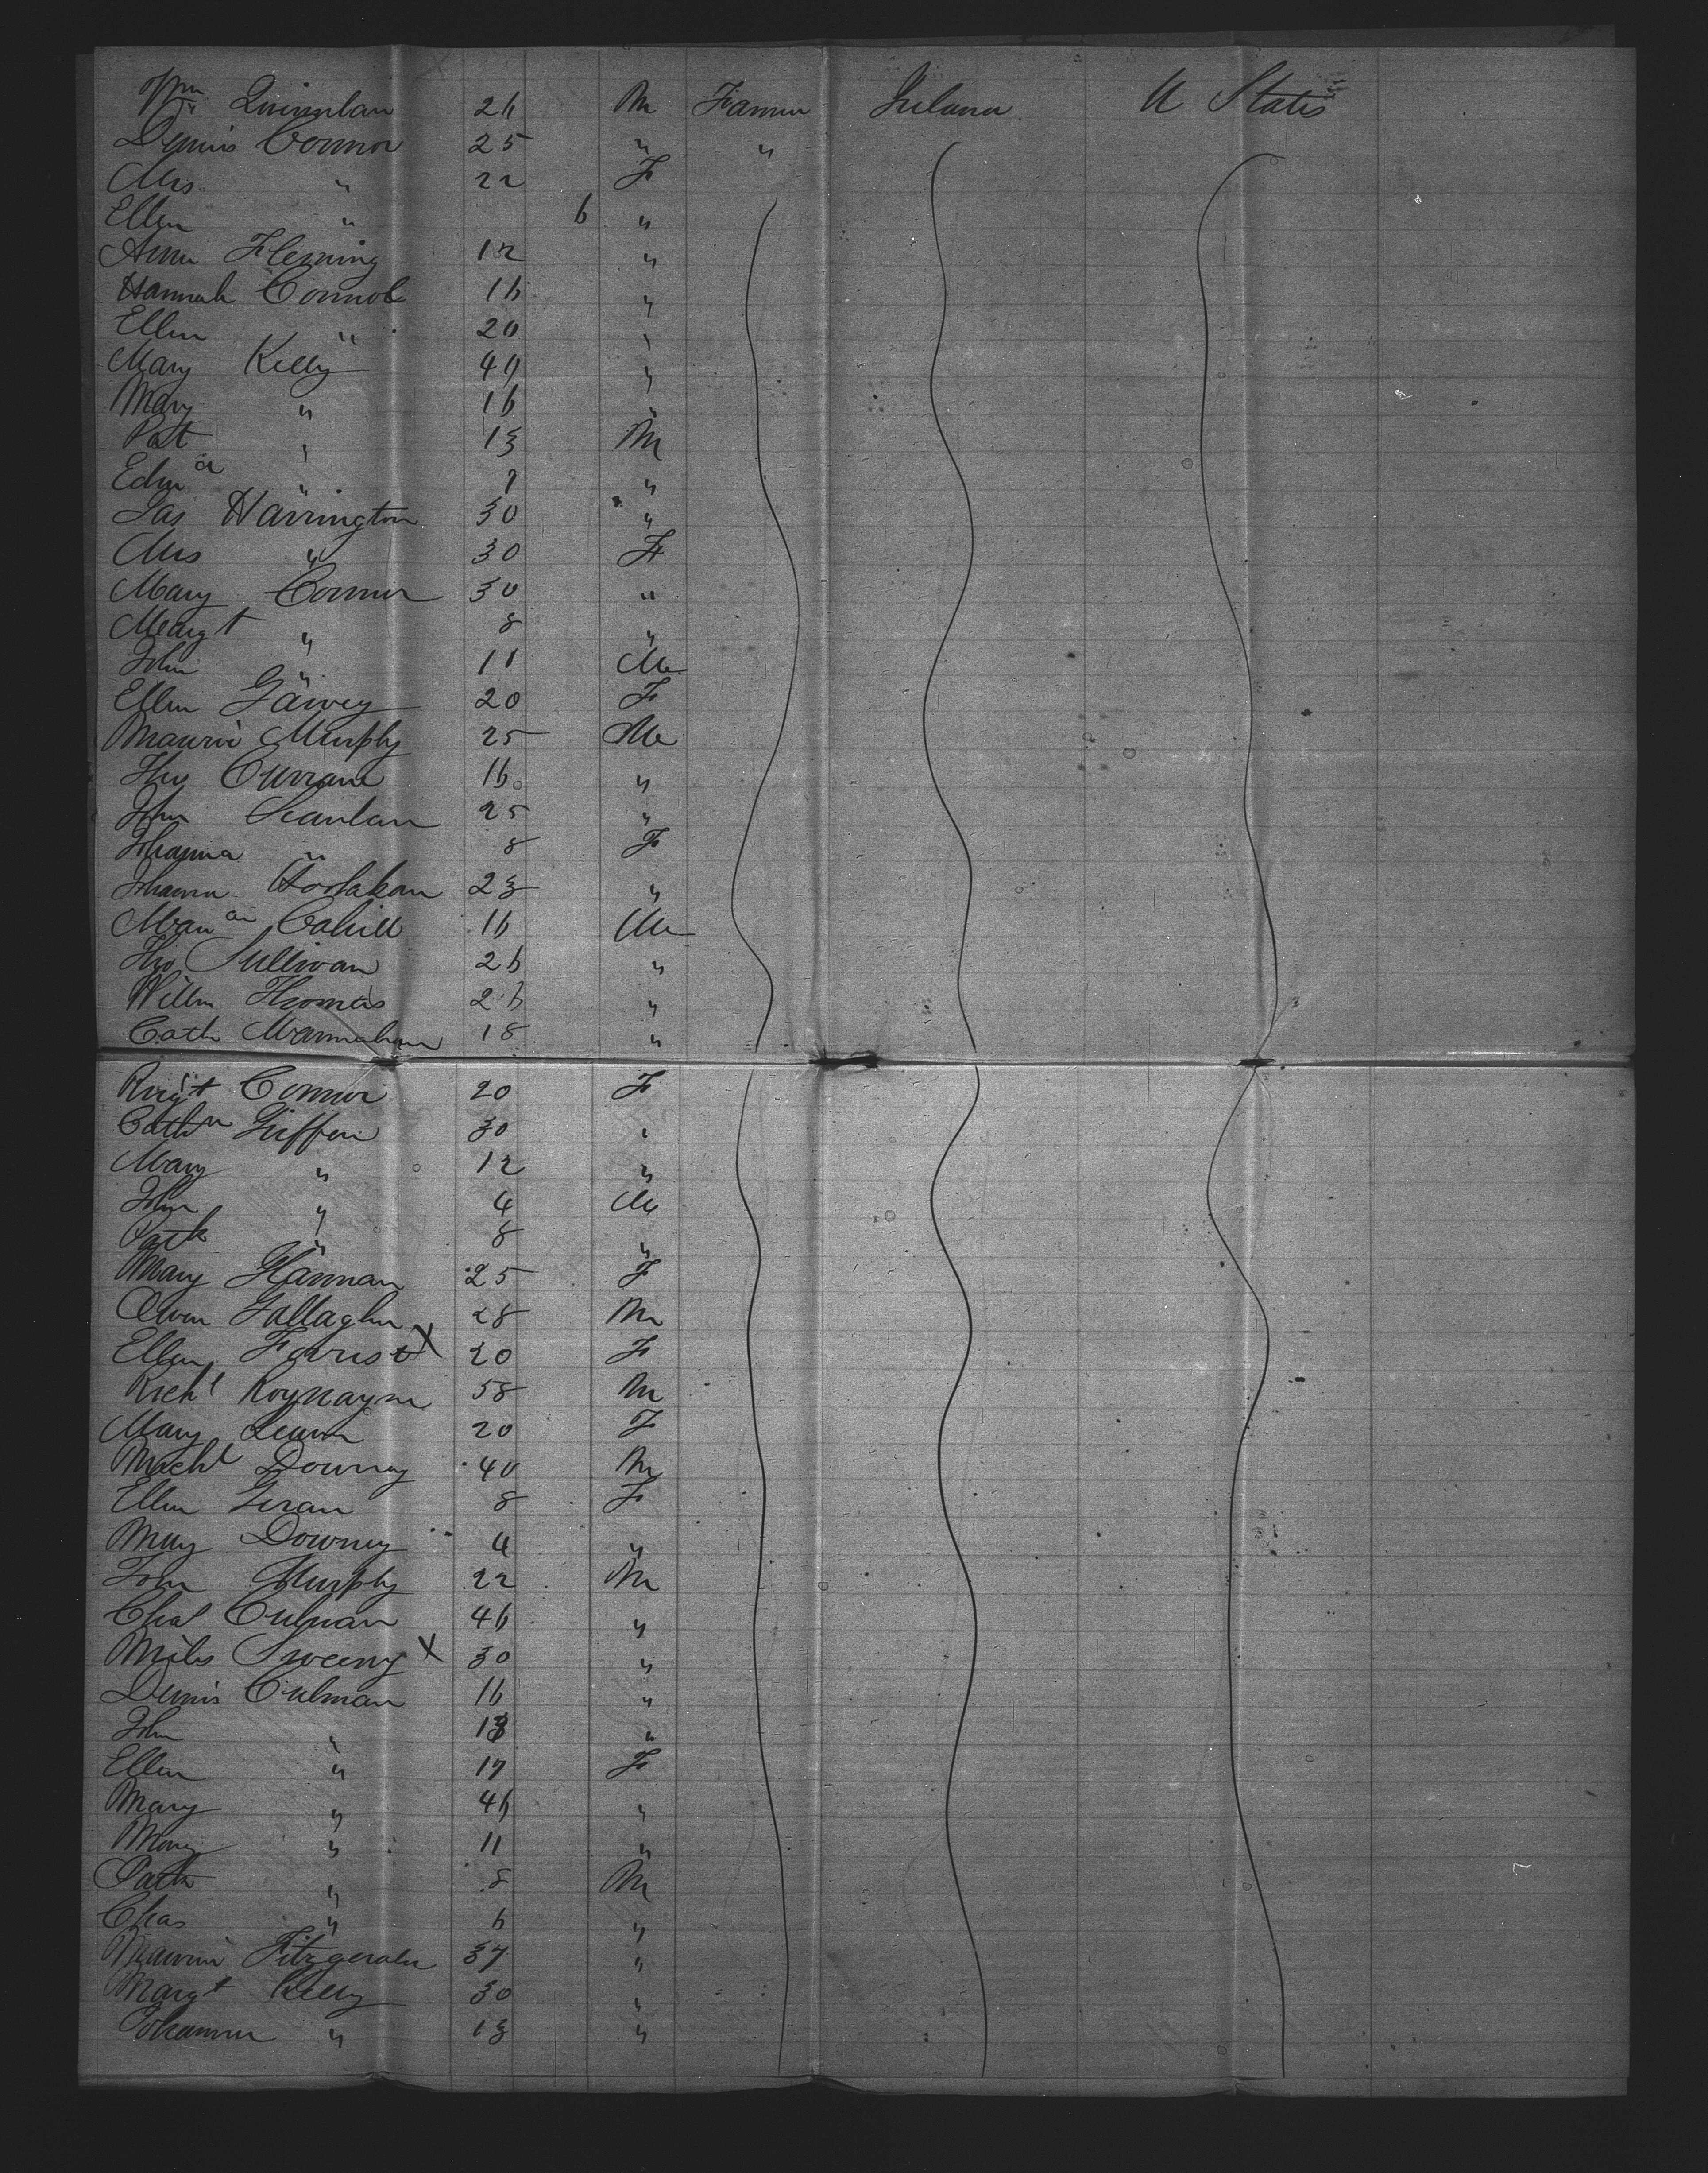 Wm Quinnlan 26 M Farmer Ireland U States
Dennis Connor 25 " "
Mrs " 22 F
Ellen " 6 "
Anne Fleming 12 "
Hannah Connol 16 "
Ellen " 20 "
Mary Kelly 40 "
Mary " 16 "
Pat " 13 M
Edmd " 9 "
Jas Harrington 30 "
Mrs " 30 F
Mary Connor 30 "
Margt " 8 "
John " 11 M
Ellen Garvey 20 F
Mauri Murphy 25 M
Tho Currane 16 "
John Scanlan 25 "
Johanna " 8 F
Johanna 23 "
Cahill 16 M
Tho Sullivan 26 "
Willm Thomas 26 "
Cath Mannahan 18 "
Connor 20 F
Cathn Griffen 30 "
Mary " 12 "
John " 4 M
Patk " 8 "
Mary Hannan 25 F
Owen Gallagher 28 M
Ellen Forrest X 20 F
Richd Roynayne 58 M
Mary 20 F
Michl Downey 40 M
Ellen Geran 8 F
May Downey 4 "
John Murphy 22 M
Chas Culnan 46 "
Miles Sweeny X 30 "
Dennis Culman 16 "
John " 13 "
Ellen " 17 F
Mary " 46 "
Mary " 11 "
Patk " 8 M
Chas " 6 "
Maurice Fitzgerald 37 "
Margt Kelly 30 "
Johanna " 13 "